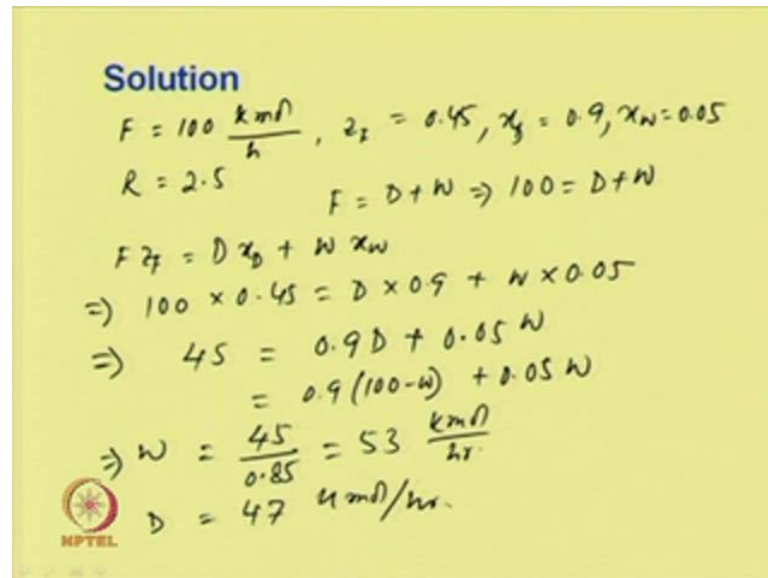 Solution
F = 100 kmol/h, z_F = 0.45, x_D = 0.9, x_W = 0.05
R = 2.5
F = D + W ⇒ 100 = D + W
F z_F = D x_D + W x_W
⇒ 100 × 0.45 = D × 0.9 + W × 0.05
⇒ 45 = 0.9 D + 0.05 W
= 0.9 (100 - W) + 0.05 W
⇒ W = 45/0.85 = 53 kmol/hr.
D = 47 kmol/hr.
NPTEL